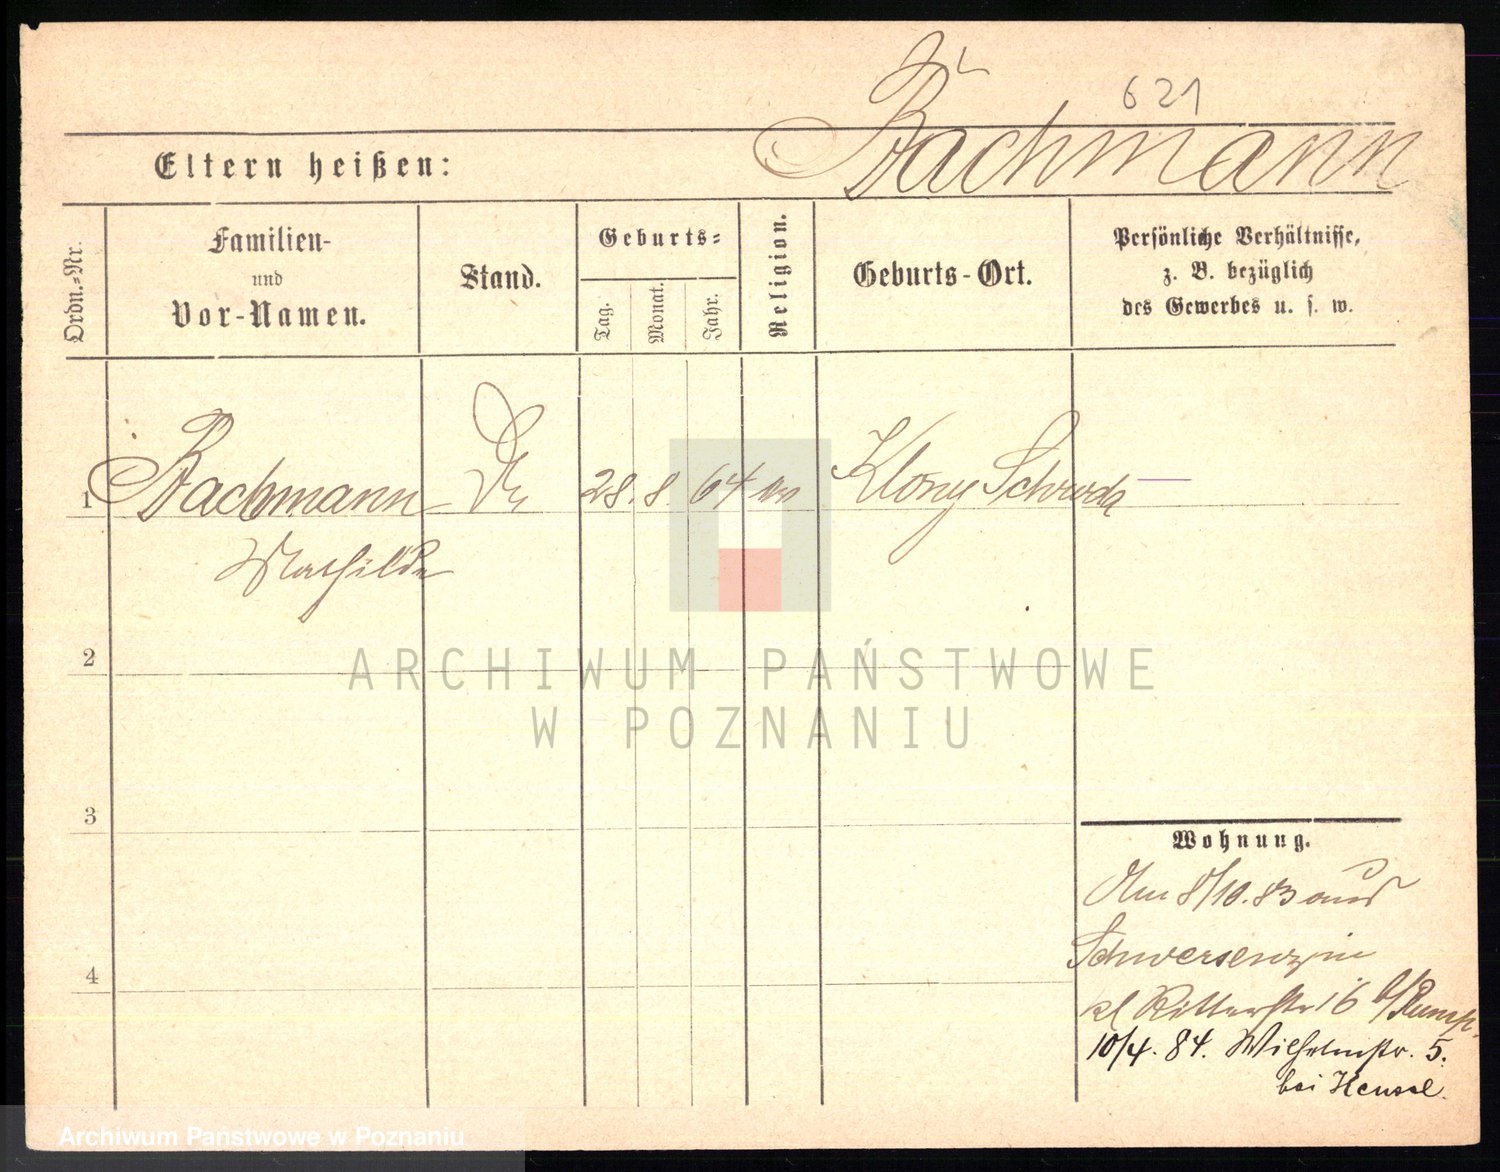 621
Bachmann
Eltern heißen:
Ordn.-Nr.
Familien-
und
Vor-Namen.
Stand.
Geburts-
Tag.
Monat.
Jahr.
Religion.
Geburts-Ort.
Persönliche Verhältnisse,
z. B. bezüglich
des Gewerbes u. s. w.
1 Bachmann 28. 8. 64 Schroda
Mathilde
2
3
4
Wohnung.
Am 8/10. 83 aus
Schwersenz in
kl Ritterstr 16 b/Rump.
10/4. 84. Wilhelmstr. 5.
bei Hensel.
ARCHIWUM PAŃSTWOWE
W POZNANIU
Archiwum Państwowe w Poznaniu